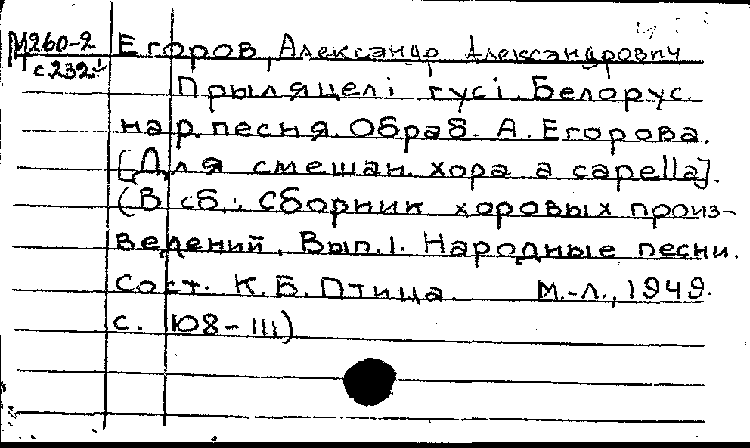 М260-2 Егоров, Александр Александрович
с 232.
Прыляцелi гусi. Белорус.
нар. песня. Обраб. А. Егорова.
[Для смешан. хора a capella].
(В сб.: Сборник хоровых произ-
ведений. Вып. 1. Народные песни.
Сост. К.Б. Птица. М.-Л., 1949.
с. 108-111)